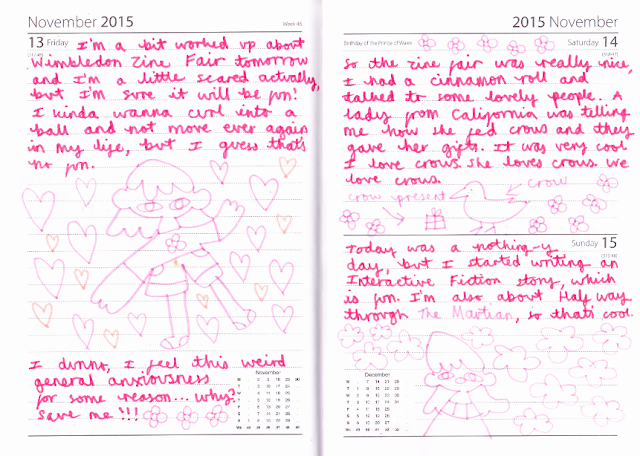 November 2015
Week 46
13 Friday
I'm a bit worked up about
Wimbledon Zine Fair tomorrow
and I'm a little scared actually,
but I'm sure it will be fun!
I kinda wanna curl into a
ball and not move ever again
in my life, but I guess that's
no fun.
I dunno, I feel this weird
general anxiousness
for some reason... why?
save me!!!
November
2015 November
Birthday of the Prince of Wales
Saturday 14
So the zine fair was really nice,
I had a cinnamon roll and
talked to some lovely people. A
lady from California was telling
me how she fed crows and they
gave her gifts. It was very cool
I love crows. she loves crows. we
love crows.
crow
crow present
Sunday 15
Today was a nothing-y
day, but I started writing an
Interactive Fiction story, which
is fun. I'm also about Half way
through The Martian, so that's cool.
December